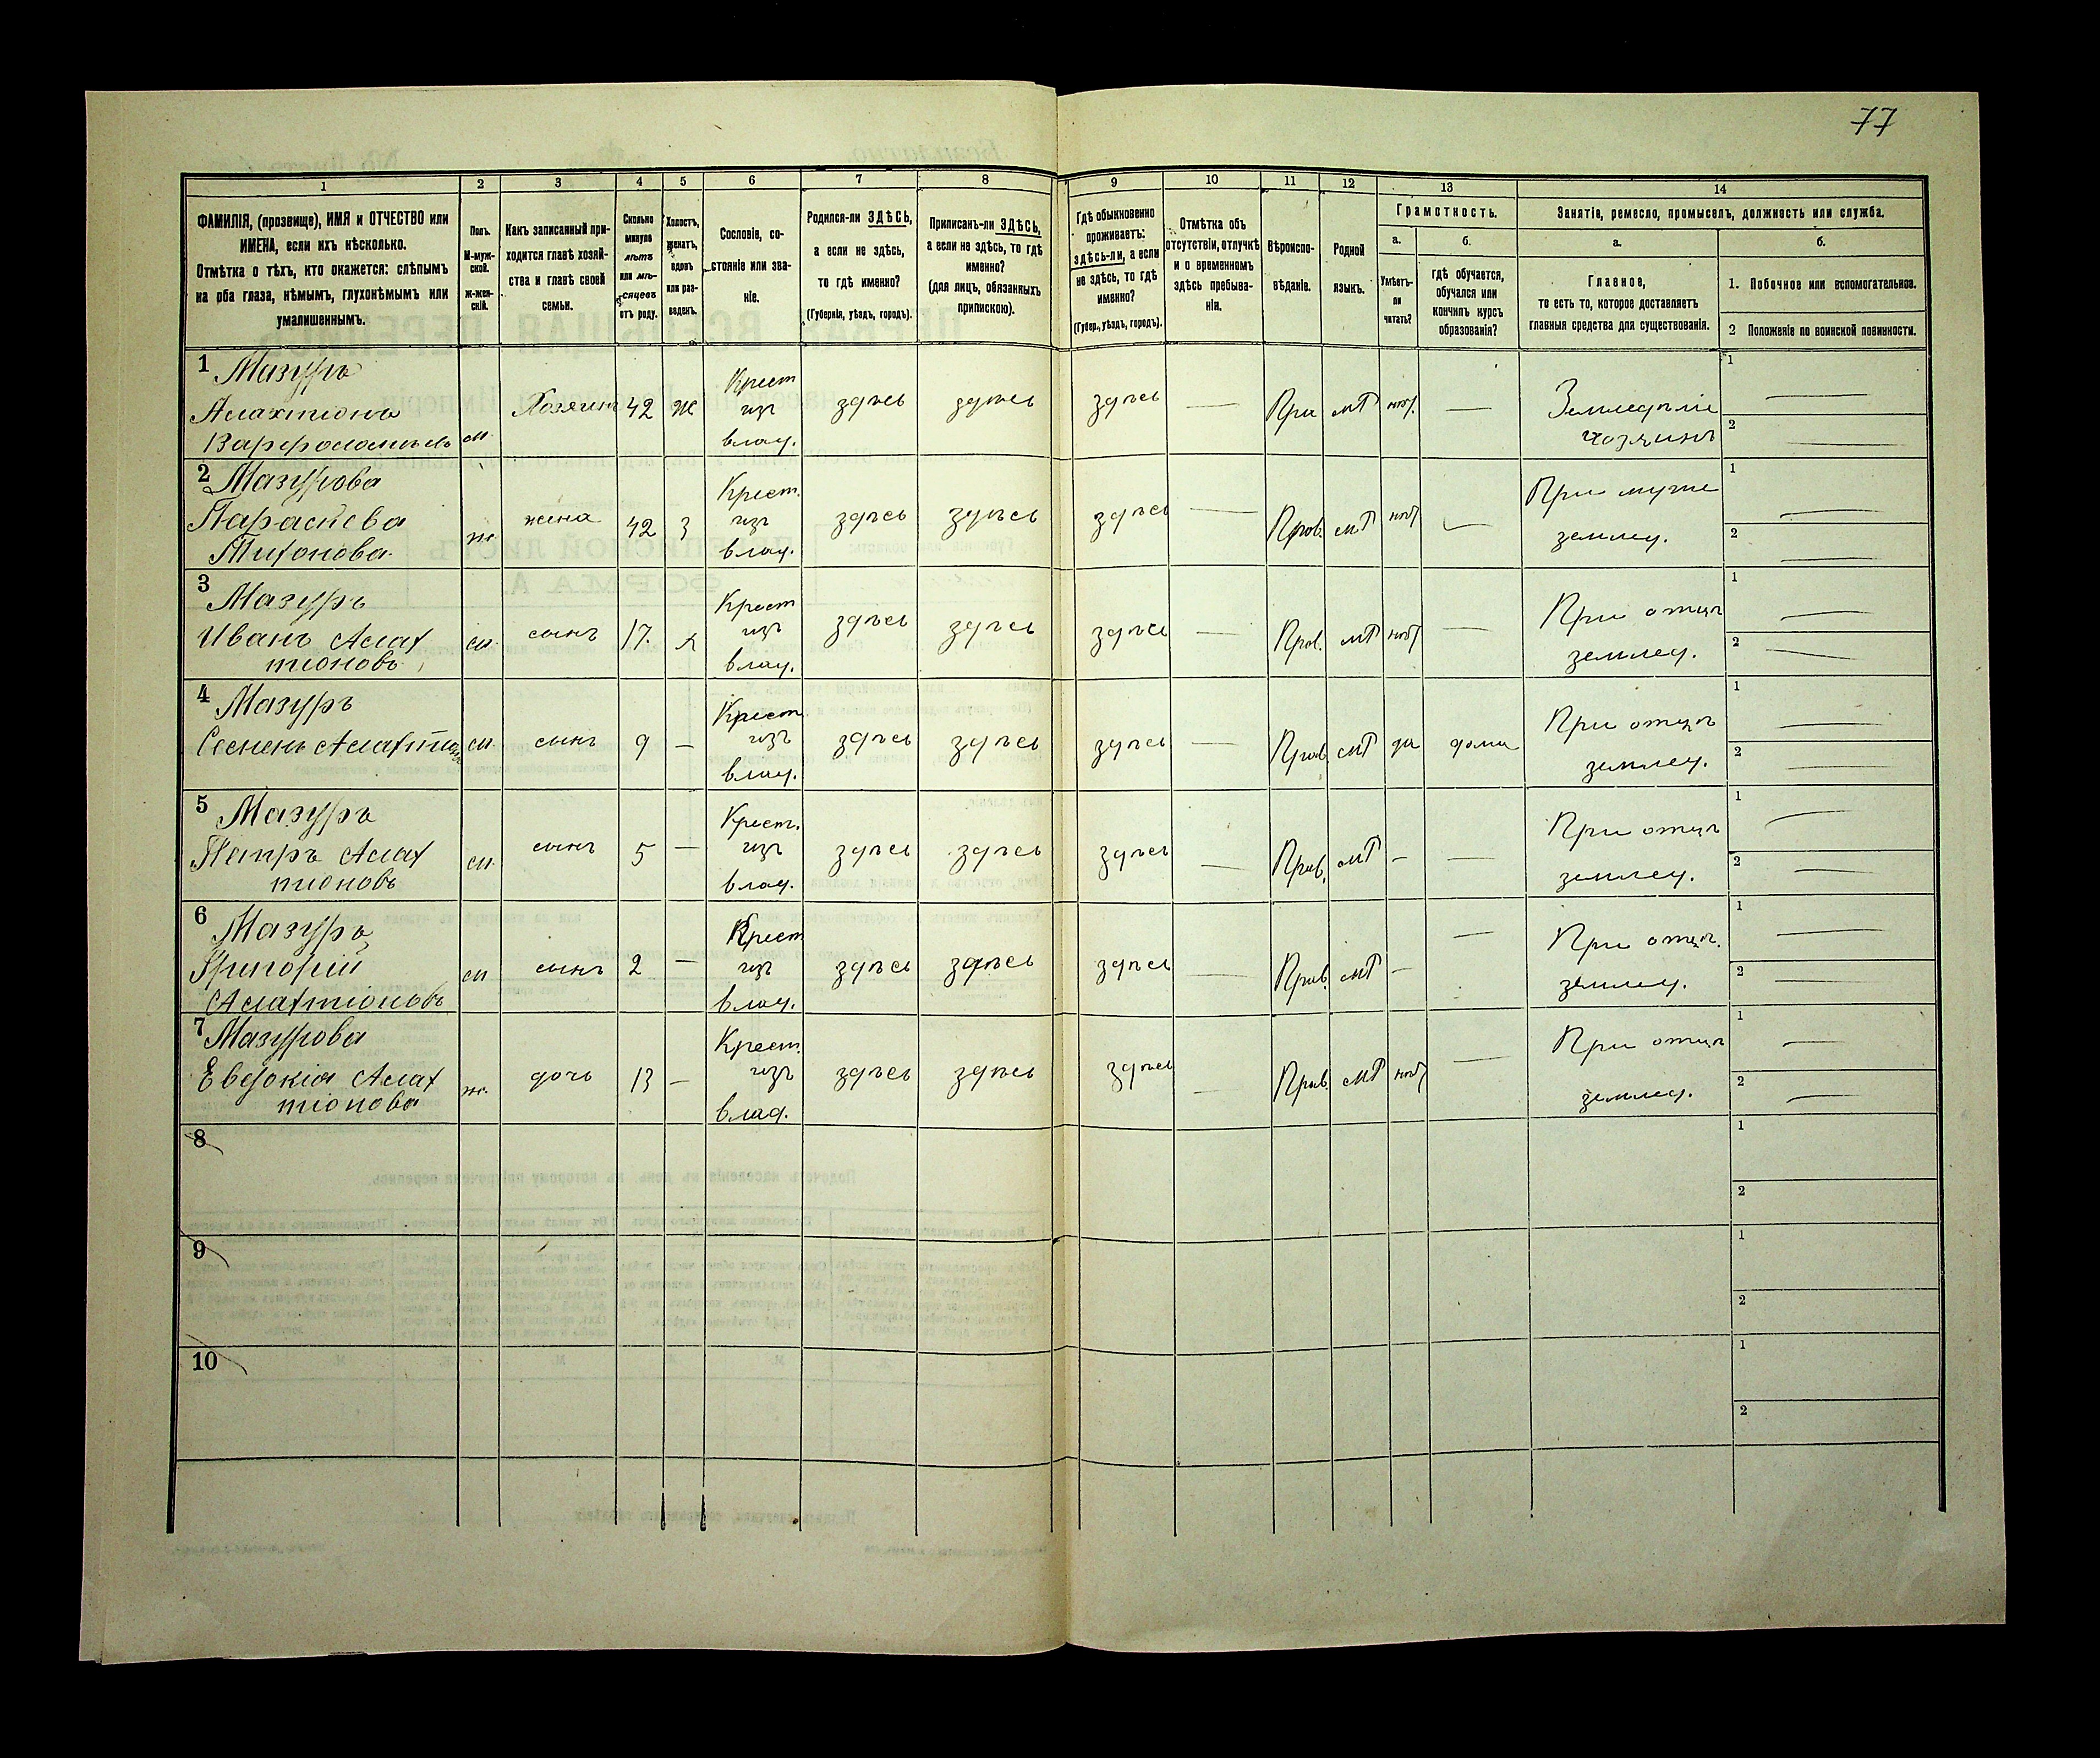 77
1 2 3 4 5 6 7 8 9 10 11 12 13 14
ФАМИЛІЯ, (прозвище), ИМЯ и ОТЧЕСТВО или
ИМЕНА, если ихъ нѣсколько.
Отмѣтка о тѣхъ, кто окажется: слѣпымъ
на оба глаза, нѣмымъ, глухонѣмымъ или
умалишеннымъ.
Полъ.
М-муж-
ской.
Ж-жен-
скій.
Какъ записанный при-
ходится главѣ хозяй-
ства и главѣ своей
семьи.
Сколько
минуло
лѣтъ
или мѣ-
сяцевъ
отъ роду.
Холостъ,
женатъ,
вдовъ
или раз-
веденъ.
Сословіе, со-
стояніе или зва-
ніе.
Родился-ли ЗДѢСЬ,
а если не здѣсь,
то гдѣ именно?
(Губернія, уѣздъ, городъ).
Приписанъ-ли ЗДѢСЬ,
а если не здѣсь, то гдѣ
именно?
(для лицъ, обязанныхъ
припискою).
Гдѣ обыкновенно
проживаетъ:
здѣсь-ли, а если
не здѣсь, то гдѣ
именно?
(Губер., уѣздъ, городъ).
Отмѣтка объ
отсутствіи, отлучкѣ
и о временномъ
здѣсь пребыва-
ніи.
Вѣроиспо-
вѣданіе.
Родной
языкъ.
Грамотность.
а.
Умѣетъ-
ли
читать?
б.
гдѣ обучается,
обучался или
кончилъ курсъ
образованія?
Занятіе, ремесло, промыселъ, должность или служба.
а.
Главное,
то есть то, которое доставляетъ
главныя средства для существованія.
б.
1. Побочное или вспомогательное.
2 Положеніе по воинской повинности.
1 Мазуръ
м. Хозяинъ 42 Ж
Крест
изъ
влад.
здѣсь здѣсь здѣсь — мР —
Земледѣліе
хозяинъ
1 —
2 —
2 Мазурова
Тихонова
ж. жена 42 З
Крест.
изъ
влад.
здѣсь здѣсь здѣсь — Прав. мР —
При мужѣ
землед.
1 —
2 —
3 Мазуръ
Иванъ
м. сынъ 17. х
Крест
изъ
влад.
здѣсь здѣсь здѣсь — Прав. мР —
При отцѣ
землед.
1 —
2 —
4 Мазуръ
м. сынъ 9 —
Крест.
изъ
влад.
здѣсь здѣсь здѣсь — Прав. мР да дома
При отцѣ
землед.
1 —
2 —
5 Мазуръ
Петръ
м. сынъ 5 —
Крест.
изъ
влад.
здѣсь здѣсь здѣсь — Прав. мР — —
При отцѣ
землед.
1 —
2 —
6 Мазуръ
Григорій
м сынъ 2 —
Крест
изъ
влад.
здѣсь здѣсь здѣсь — Прав. мР — —
При отцѣ.
землед.
1 —
2 —
7 Мазурова
Евдокія
ж. дочь 13 —
Крест.
изъ
влад.
здѣсь здѣсь здѣсь — Прав. мР —
При отцѣ
землед.
1 —
2 —
8
1
2
9
1
2
10
1
2